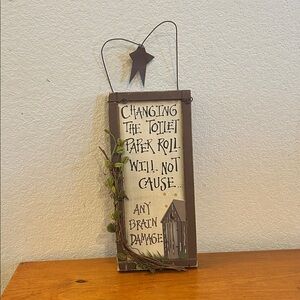 CHANGING
THE TOILET
PAPER ROLL
WILL NOT
CAUSE..
ANY
BRAIN
DAMAGE